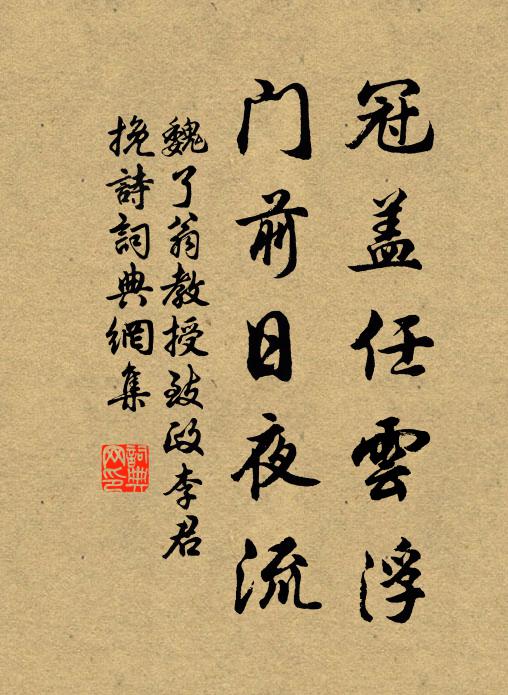 冠盖任雲浮
门前日夜流
魏了翁教授致政李君
挽詩詞典網集
詞典
网印